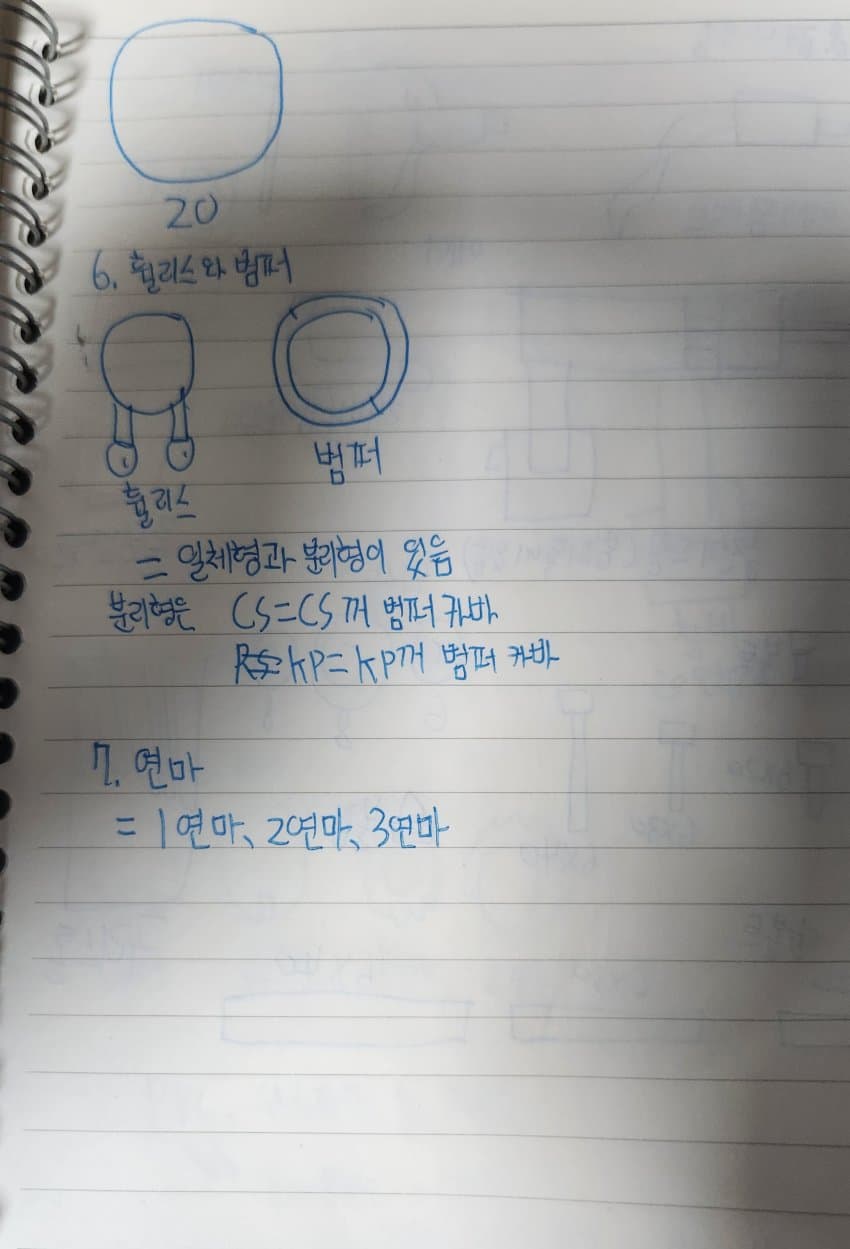 20
6. 휠리스와 범퍼
범퍼
휠리스
= 일체형과 분리형이 있음
분리형은 CS=CS꺼 범퍼 카바
KP=KP꺼 범퍼 카바
7. 연마
= 1연마, 2연마, 3연마